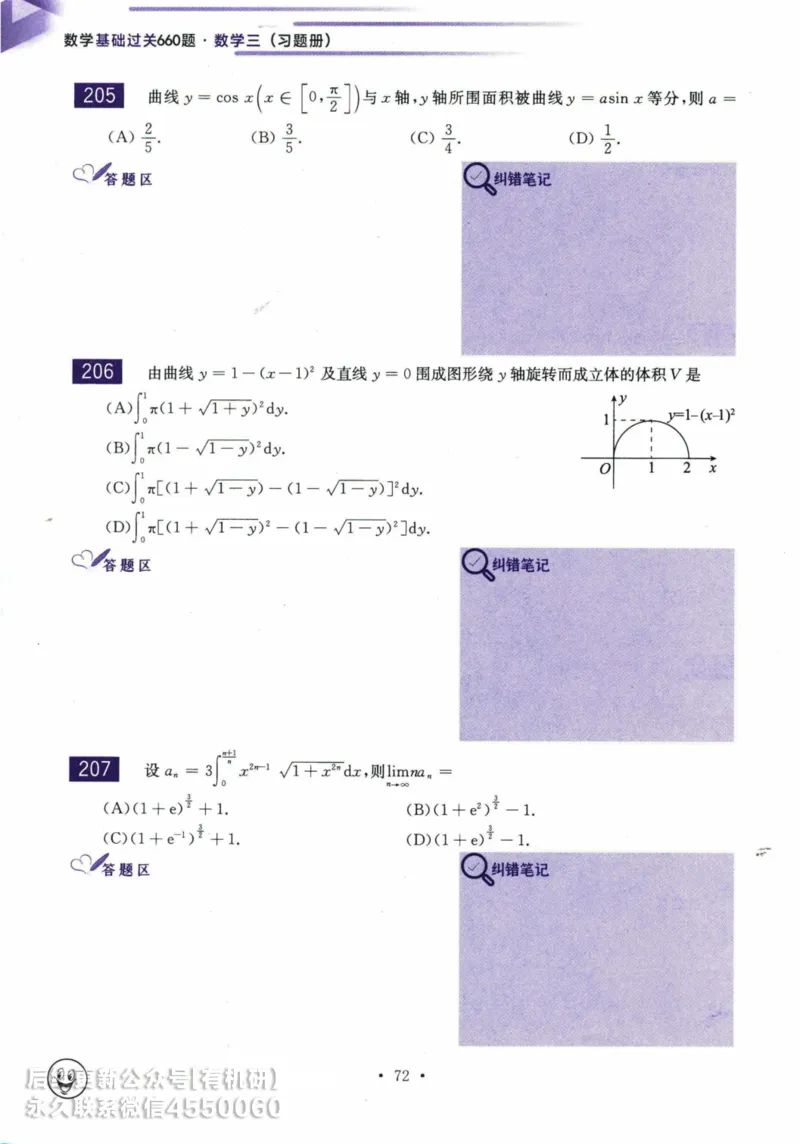 数学基础过关660题·数学三（习题册）
205 曲线 y = cos x(x ∈ [0, π/2])与 x 轴,y 轴所围面积被曲线 y = asin x 等分,则 a =
(A) 2/5. (B) 3/5. (C) 3/4. (D) 1/2.
答题区 纠错笔记
206 由曲线 y = 1−(x−1)² 及直线 y = 0 围成图形绕 y 轴旋转而成立体的体积 V 是
(A)∫₀¹ π(1+√(1+y))²dy.
(B)∫₀¹ π(1−√(1−y))²dy.
(C)∫₀¹ π[(1+√(1−y))−(1−√(1−y))]²dy.
(D)∫₀¹ π[(1+√(1−y))²−(1−√(1−y))²]dy.
y
1 y=1-(x-1)²
O 1 2 x
答题区 纠错笔记
207 设 aₙ = 3∫₀^((n+1)/n) x²ⁿ⁻¹ √(1+x²ⁿ)dx,则lim(n→∞) naₙ =
(A)(1+e)^(3/2)+1. (B)(1+e²)^(3/2)−1.
(C)(1+e⁻¹)^(3/2)+1. (D)(1+e)^(3/2)−1.
答题区 纠错笔记
· 72 ·
公众号[有机研]
永久联系微信4550060